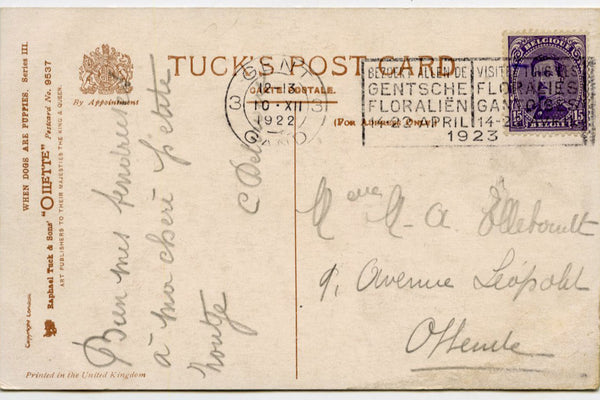 TUCK'S POST CARD
CARTE POSTALE.
(FOR ADDRESS ONLY)
By Appointment
WHEN DOGS ARE PUPPIES. Series III.
Raphael Tuck & Sons' "OILETTE" Postcard No. 9537
ART PUBLISHERS TO THEIR MAJESTIES THE KING & QUEEN.
Copyright London.
Printed in the United Kingdom
GENT
12-13
10·XII
1922
GAND
3 3
BEZOEKT ALLEN DE VISITEZ TOUS LES
GENTSCHE FLORALIES
FLORALIËN GANTOISES
APRIL 14-2
1923
BELGIQUE
15 15
à ma chère petite
9, Avenue Léopold
Ostende